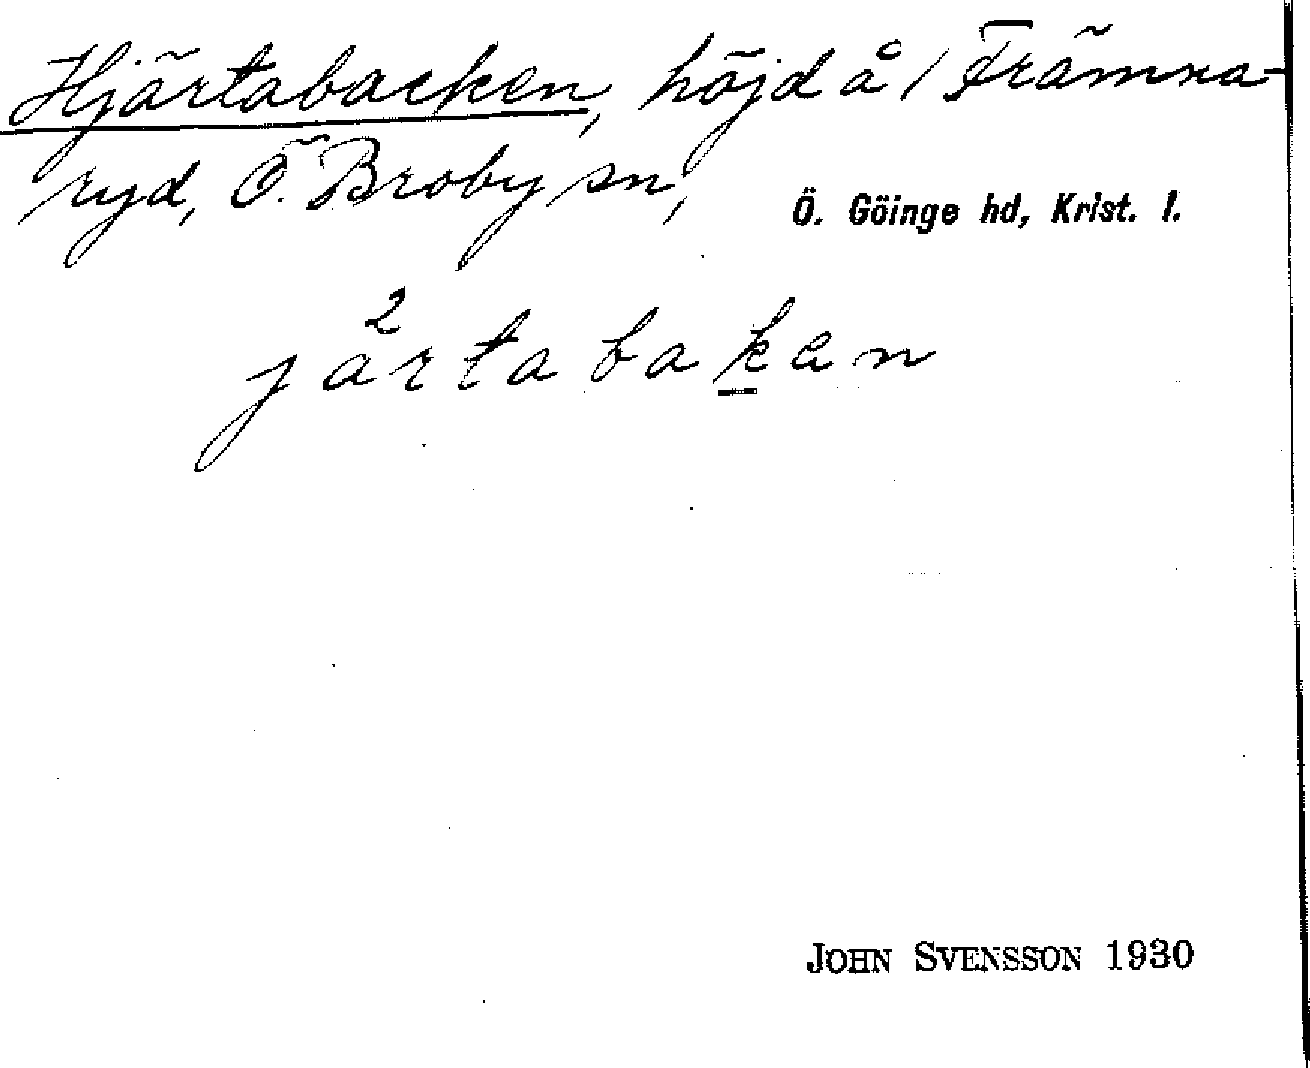 Hjärtabacken, höjd å / Främna-
ryd, Ö. Broby sn, Ö. Göinge hd, Krist. l.
2
jartabaken
JOHN SVENSSON 1930